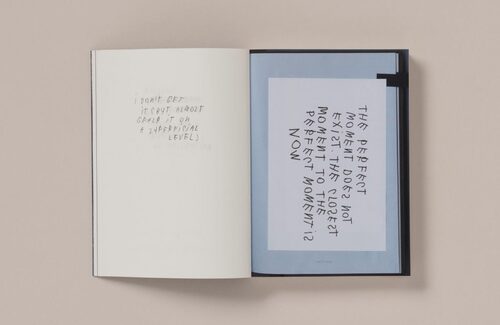 I DON'T GET
IT (BUT ALMOST
IT ON
A SUPERFICIAL
LEVEL)
THE PERFECT
MOMENT DOES NOT
EXIST. THE CLOSEST
MOMENT TO THE
PERFECT MOMENT IS
NOW